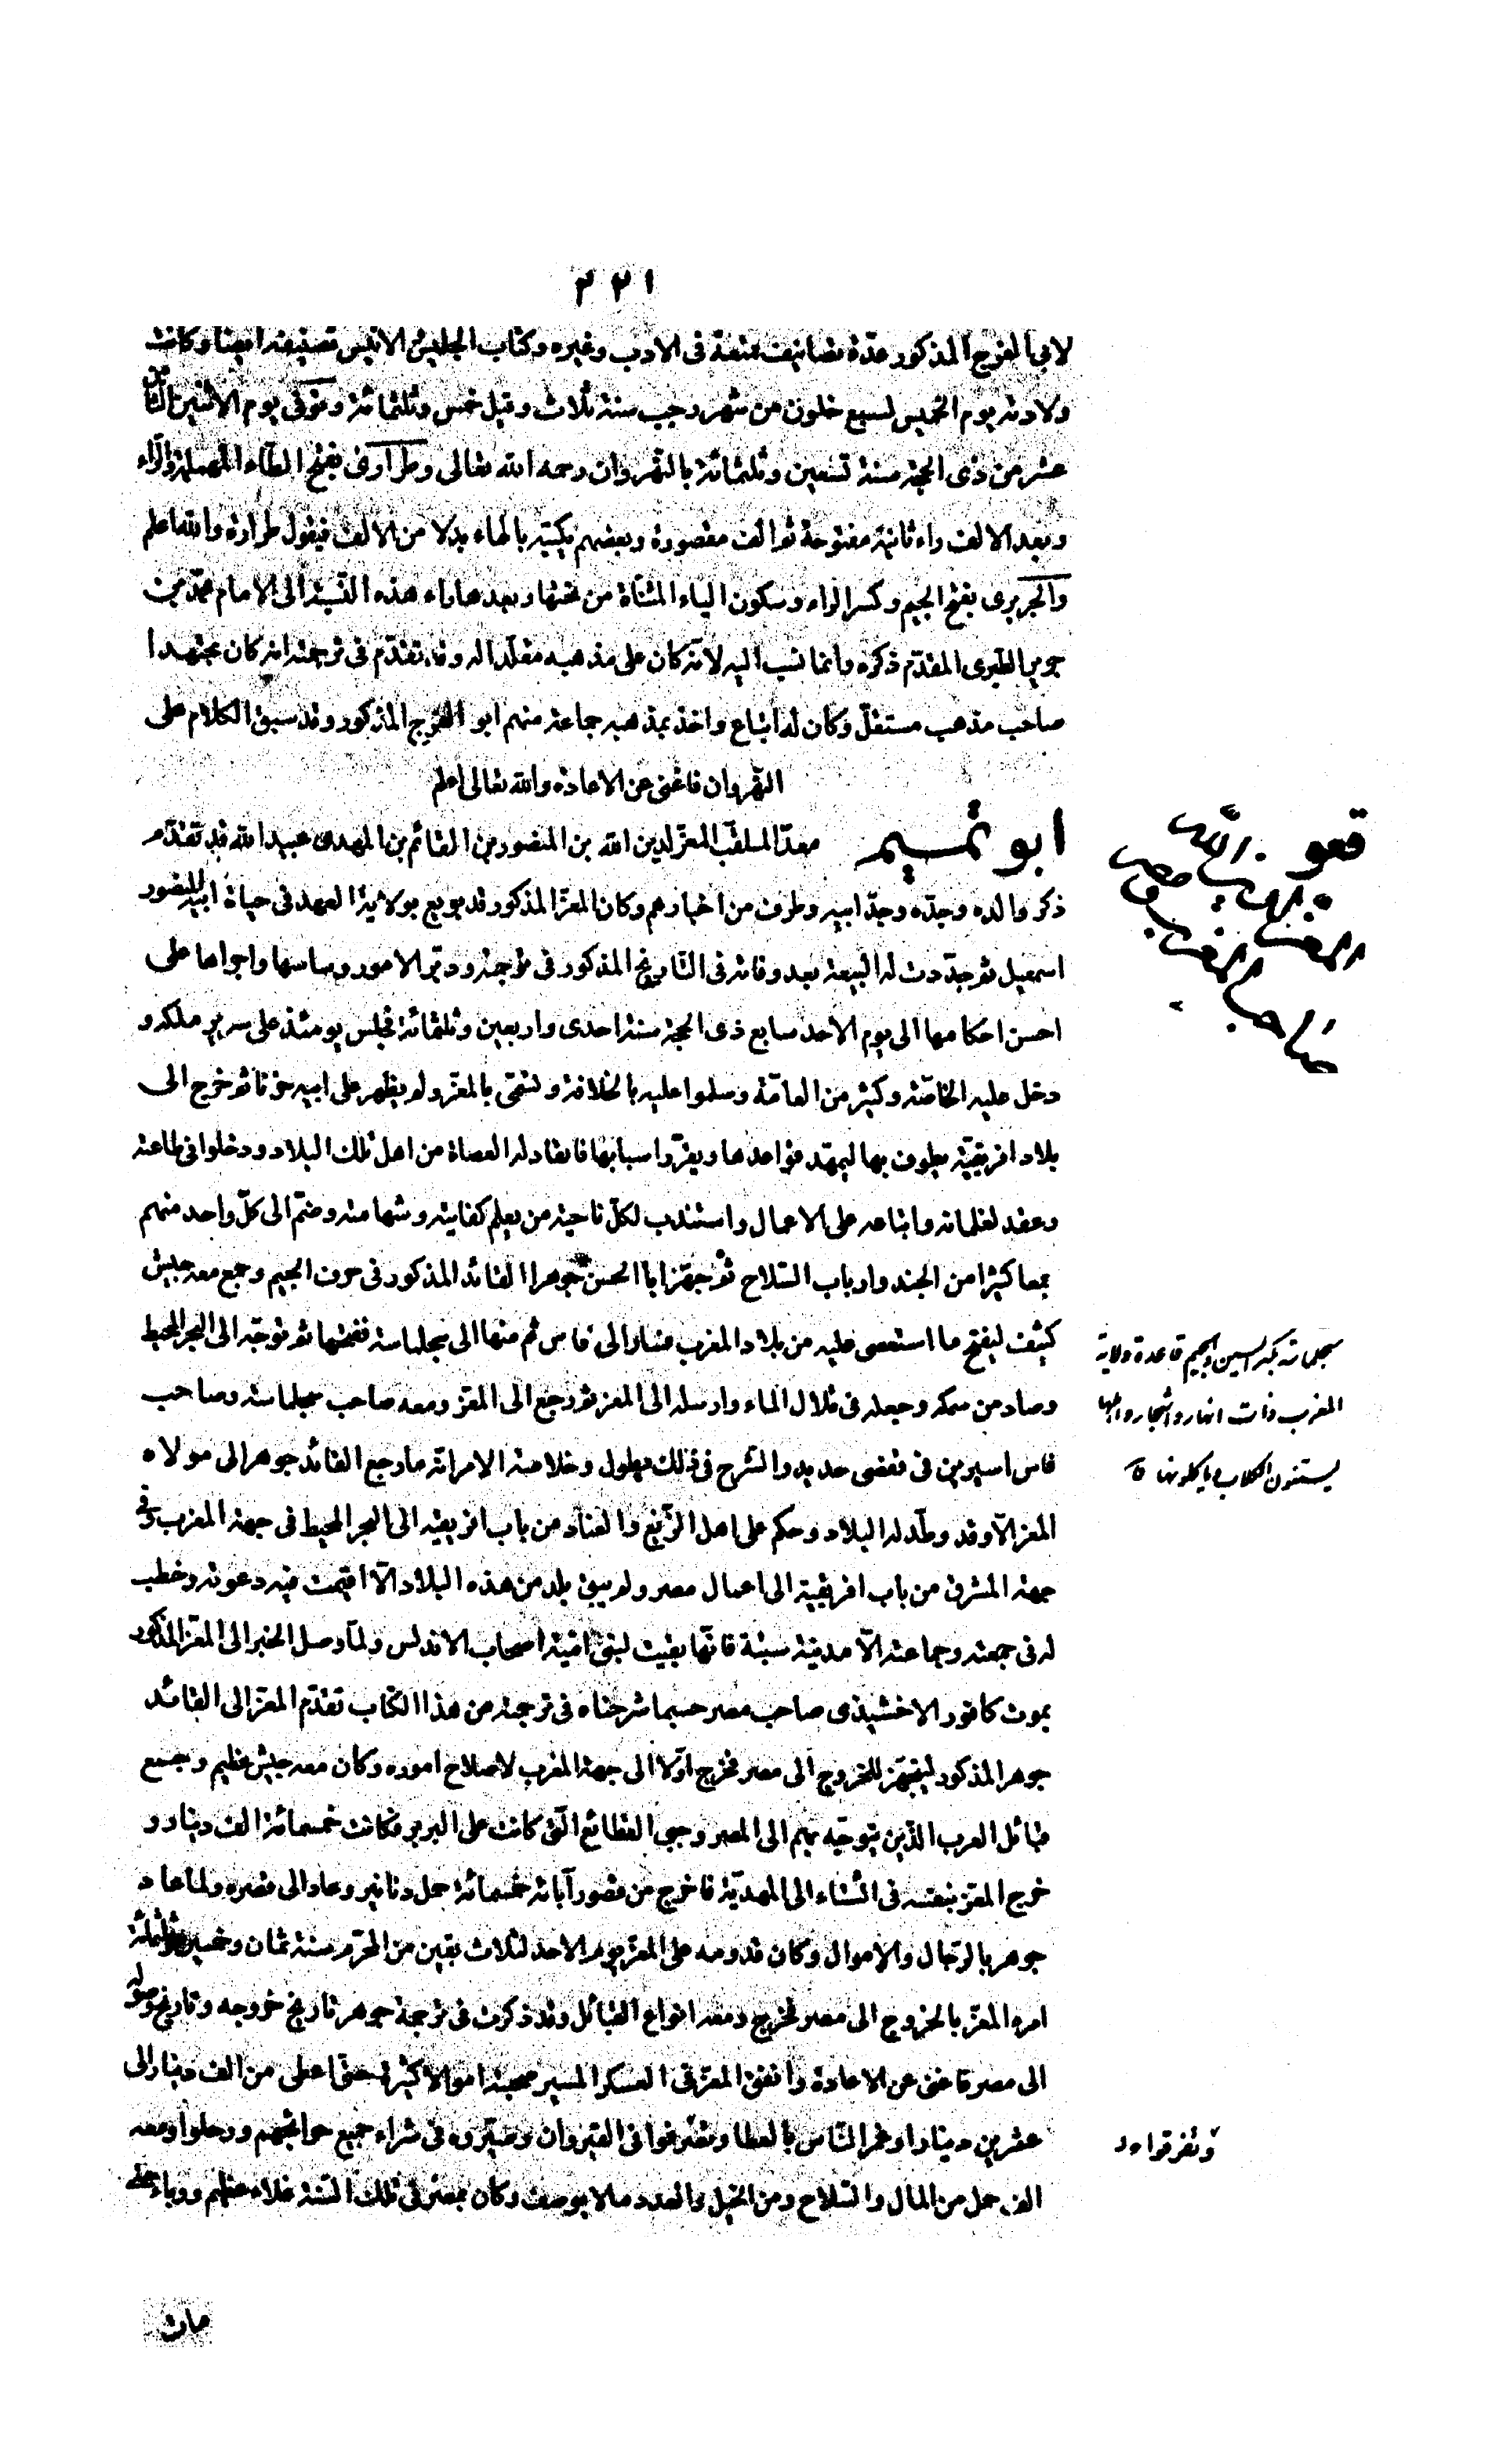 ٢٢١
لابى الفرج المذكور عدّة تصانيف ممتعة فى الادب وغيره وكتاب الجليس الانيس تصنيفه ايضا وكانت
ولادته يوم الخميس لسبع خلون من شهر رجب سنة ثلاث وقيل خمس وثلثمائة وتوفى يوم الاثنين الثامن
عشر من ذى الحجة سنة تسعين وثلثمائة بالنهروان رحمه الله تعالى وطرارى بفتح الطاء المهملة والراء
وبعد الالف راء ثانية مفتوحة ثم الف مقصورة وبعضهم يكتبه بالهاء بدلا من الالف فيقول طرارة والله اعلم
والجريرى بفتح الجيم وكسر الراء وسكون الياء المثناة من تحتها وبعدها راء هذه النسبة الى الامام محمد بن
جرير الطبرى المقدّم ذكره وانما نسب اليه لانه كان على مذهبه مقلدا له وقد تقدّم فى ترجمته انه كان مجتهدا
صاحب مذهب مستقلّ وكان له اتباع واخذ بمذهبه جماعة منهم ابو الفرج المذكور وقد سبق الكلام على
النهروان فاغنى عن الاعادة والله تعالى اعلم
ابو تميم معدّ الملقب المعز لدين الله بن المنصور بن القائم بن المهدى عبيد الله قد تقدّم
ذكر والده وجدّه وجدّ ابيه وطرف من اخبارهم وكان المعز المذكور قد بويع بولاية العهد فى حياة ابيه المنصور
اسمعيل ثم جدّدت له البيعة بعد وفاته فى التاريخ المذكور فى ترجمته ودبّر الامور وساسها واجراها على
احسن احكامها الى يوم الاحد سابع ذى الحجة سنة احدى واربعين وثلثمائة فجلس يومئذ على سرير ملكه و
دخل عليه الخاصّة وكثير من العامّة وسلموا عليه بالخلافة وتسمّى بالمعزّ ولم يظهر على ابيه حزنا ثم خرج الى
بلاد افريقيّة يطوف بها ليمهّد قواعدها ويقرّر اسبابها فانقاد له العصاة من اهل تلك البلاد ودخلوا فى طاعته
وعقد لغلمانه واتباعه على الاعمال واستندب لكلّ ناحية من يعلم كفايته وشهامته وضمّ الى كلّ واحد منهم
جمعا كثيرا من الجند وارباب السلاح ثم جهّز ابا الحسن جوهرا القائد المذكور فى حرف الجيم وجمع معه جيش
كثيف ليفتح ما استعصى عليه من بلاد المغرب فسار الى فاس ثم منها الى سجلماسة ففتحها ثم توجّه الى البحر المحيط
وصاد من سمكه وجعله فى قلال الماء وارسله الى المعز ثم رجع الى المعز ومعه صاحب سجلماسة وصاحب
فاس اسيرين فى قفصى حديد والشرح فى ذلك يطول وخلاصة الامر انه ما رجع القائد جوهر الى مولاه
المعز الّا وقد وطّد له البلاد وحكم على اهل الزيغ والعناد من باب افريقيه الى البحر المحيط فى جهة المغرب وفى
جهة المشرق من باب افريقية الى اعمال مصر ولم يبق بلد من هذه البلاد الّا اقيمت فيه دعوته وخطب
له فى جمعته وجماعته الّا مدينة سبتة فانّها بقيت لبنى اميّة اصحاب الاندلس ولمّا وصل الخبر الى المعز المذكور
بموت كافور الاخشيذى صاحب مصر حسبما شرحناه فى ترجمته من هذا الكتاب تقدّم المعز الى القائد
جوهر المذكور ليتجهّز للخروج الى مصر فخرج اوّلا الى جهة المغرب لاصلاح اموره وكان معه جيش عظيم وجمع
قبائل العرب الذين يتوجّه بهم الى المصر وجبى القطائع التى كانت على البربر فكانت خمسمائة الف دينار و
خرج المعز بنفسه فى الشتاء الى المهديّة فاخرج من قصور آبائه خمسمائة حمل دنانير وعاد الى قصره ولما عاد
جوهر بالرجال والاموال وكان قدومه على المعز يوم الاحد لثلاث بقين من المحرّم سنة ثمان وخمسين وثلثمائة
امره المعز بالخروج الى مصر فخرج ومعه انواع القبائل وقد ذكرت فى ترجمة جوهر تاريخ خروجه وتاريخ وصوله
الى مصر فاغنى عن الاعادة وانفق المعز فى العسكر المسير صحبته اموالا كثيرة حتى اعطى من الف دينار الى
عشرين دينارا وغمر الناس بالعطا وتصرفوا فى القيروان وصبرة فى شراء جميع حوائجهم ورحلوا ومعه
الف حمل من المال والسلاح ومن الخيل والعدد ما لا يوصف وكان بمصر فى تلك السنة غلاء عظيم ووباء حتى
مات
المعز لدين الله
صاحب المغرب ومصر
سجلماسة بكسر السين والجيم قاعدة ولاية
المغرب ذات انهار واشجار واهلها
يستمنون الكلاب ويأكلونها
وتفرقوا